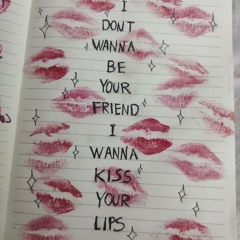 I
DONT
WANNA
BE
YOUR
FRIEND
I
WANNA
KISS
YOUR
LIPS